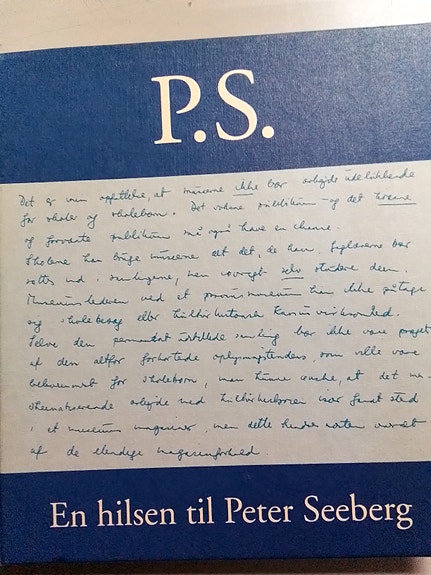 P.S.
Det er min opfattelse, at museerne ikke bør arbejde udelukkende
for skoler og skolebørn. Det voksne publikum og det krævende
og forvænte publikum må også have en chance.
Skolerne kan bruge museerne til det, de kan, lærerne bør
sættes ind i samlingerne, men iøvrigt selv studere dem.
Museumslederen ved et provinsmuseum kan ikke påtage
sig skolebesøg eller kulturhistorisk
Selve den permanent udstillede samling bør ikke være præget
af den altfor forkortede oplysningstendens, som ville være
for skolebørn, man kunne ønske, at det
arbejde med kulturhistorien især fandt sted
i et museums magasiner, men dette hindres næsten overalt
af de elendige magasinforhold.
En hilsen til Peter Seeberg